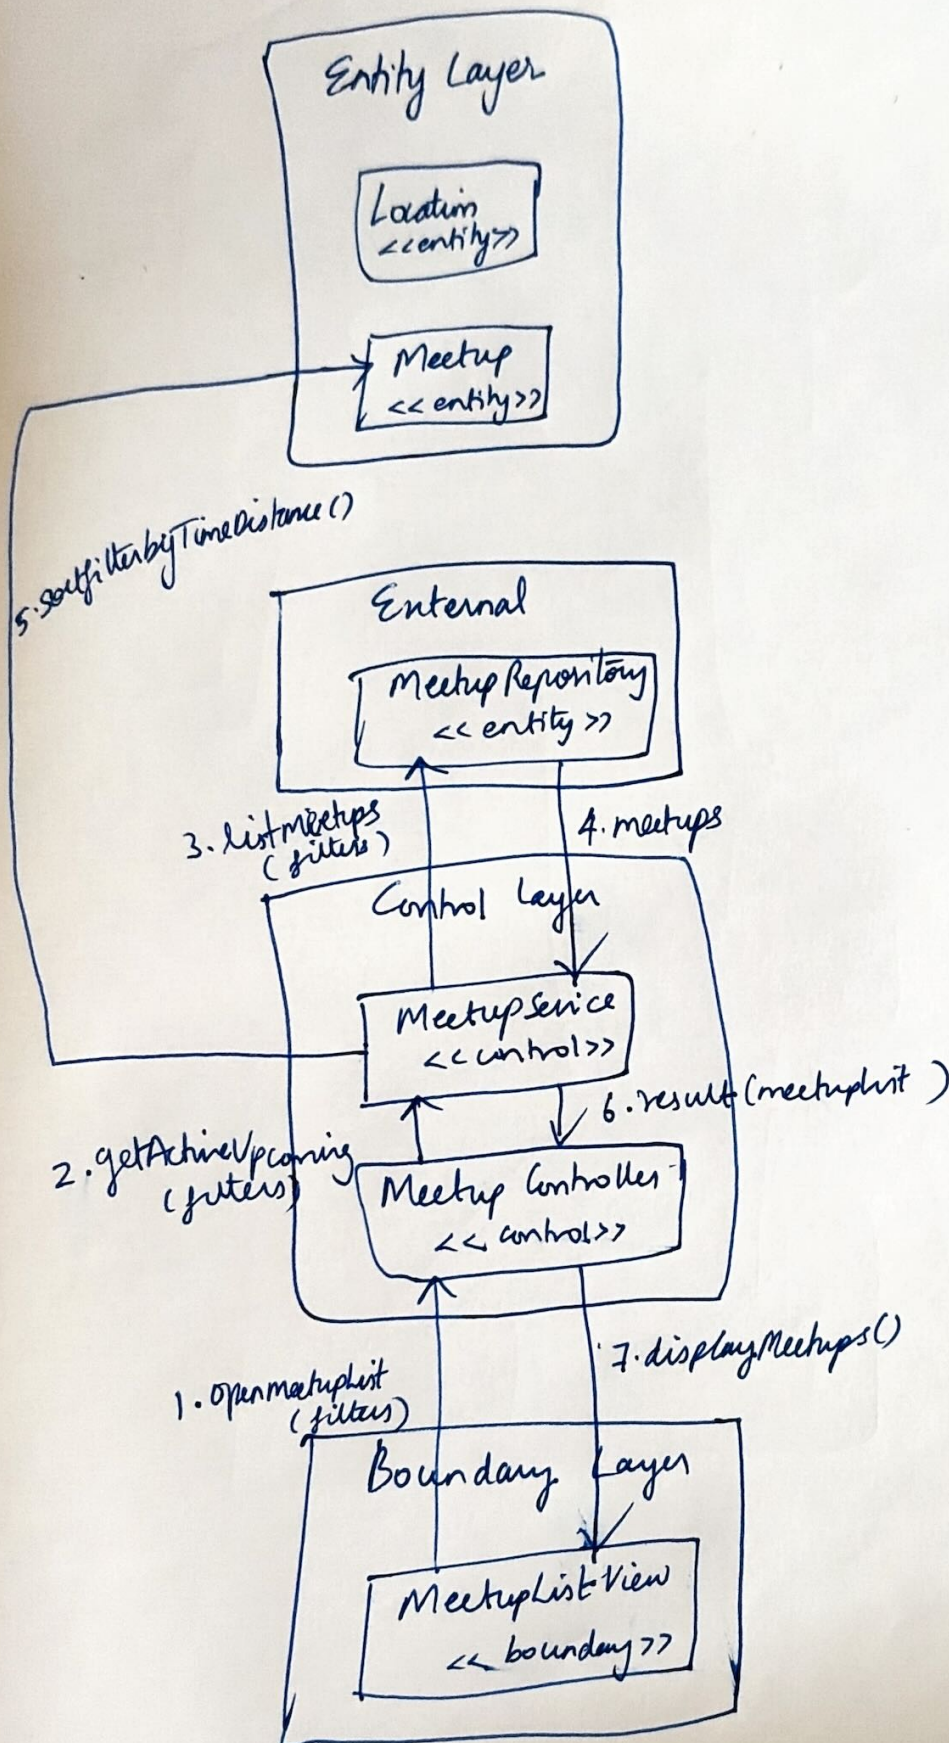 Entity Layer
Location
<<entity>>
Meetup
<< entity>>
5.sortfilterbyTimeDistance()
External
MeetupRepository
<< entity >>
3. listMeetups
(filters)
4. meetups
Control Layer
MeetupService
<<control>>
6. result(meetuplist)
2. getActiveUpcoming
(filters)
Meetup Controller
<< control>>
7. displayMeetups()
1. openmeetuplist
(filters)
Boundary Layer
MeetupListView
<< boundary>>